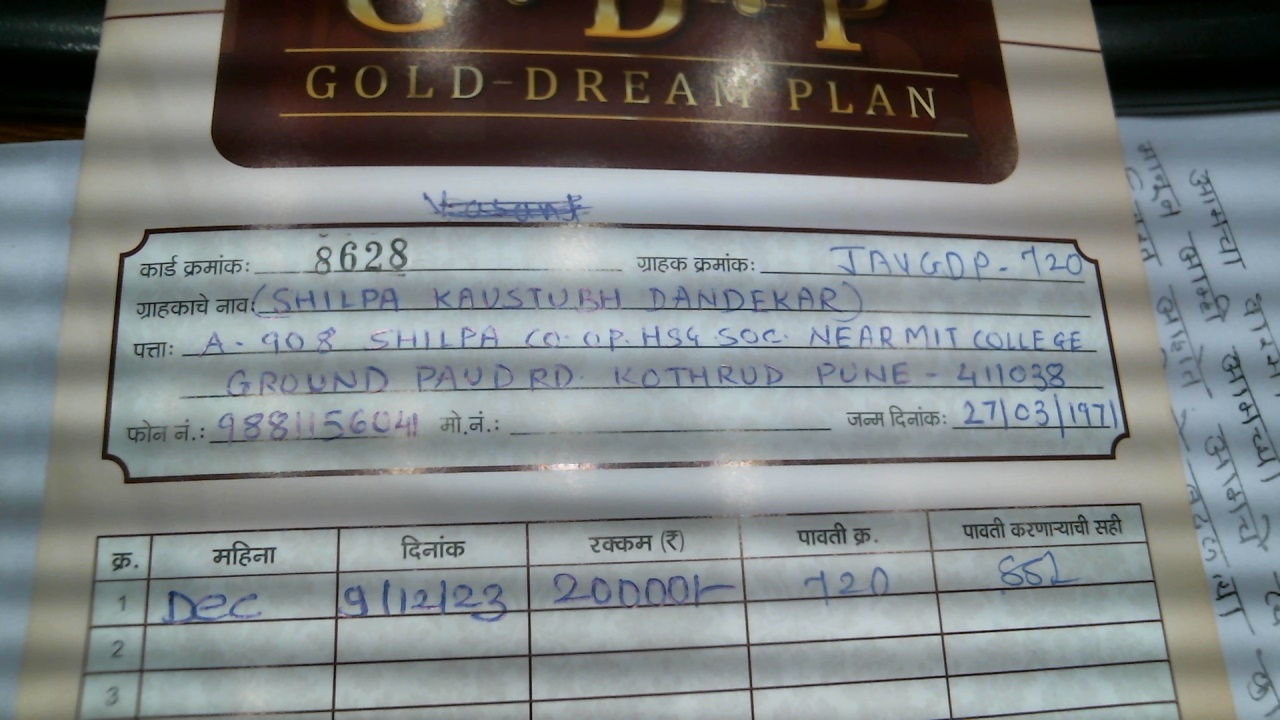 G·D·P
GOLD-DREAM PLAN
कार्ड क्रमांक: 8628 ग्राहक क्रमांक: JAVGDP-720
ग्राहकाचे नाव: (SHILPA KAUSTUBH DANDEKAR)
पत्ता: A-908 SHILPA CO.OP.HSG.SOC. NEAR MIT COLLEGE
GROUND PAUD RD. KOTHRUD PUNE - 411038
फोन नं.: 9881156041 मो.नं.: जन्म दिनांक: 27/03/1971
क्र. महिना दिनांक रक्कम (₹) पावती क्र. पावती करणाऱ्याची सही
1 Dec 9/12/23 20000/- 720
2
3